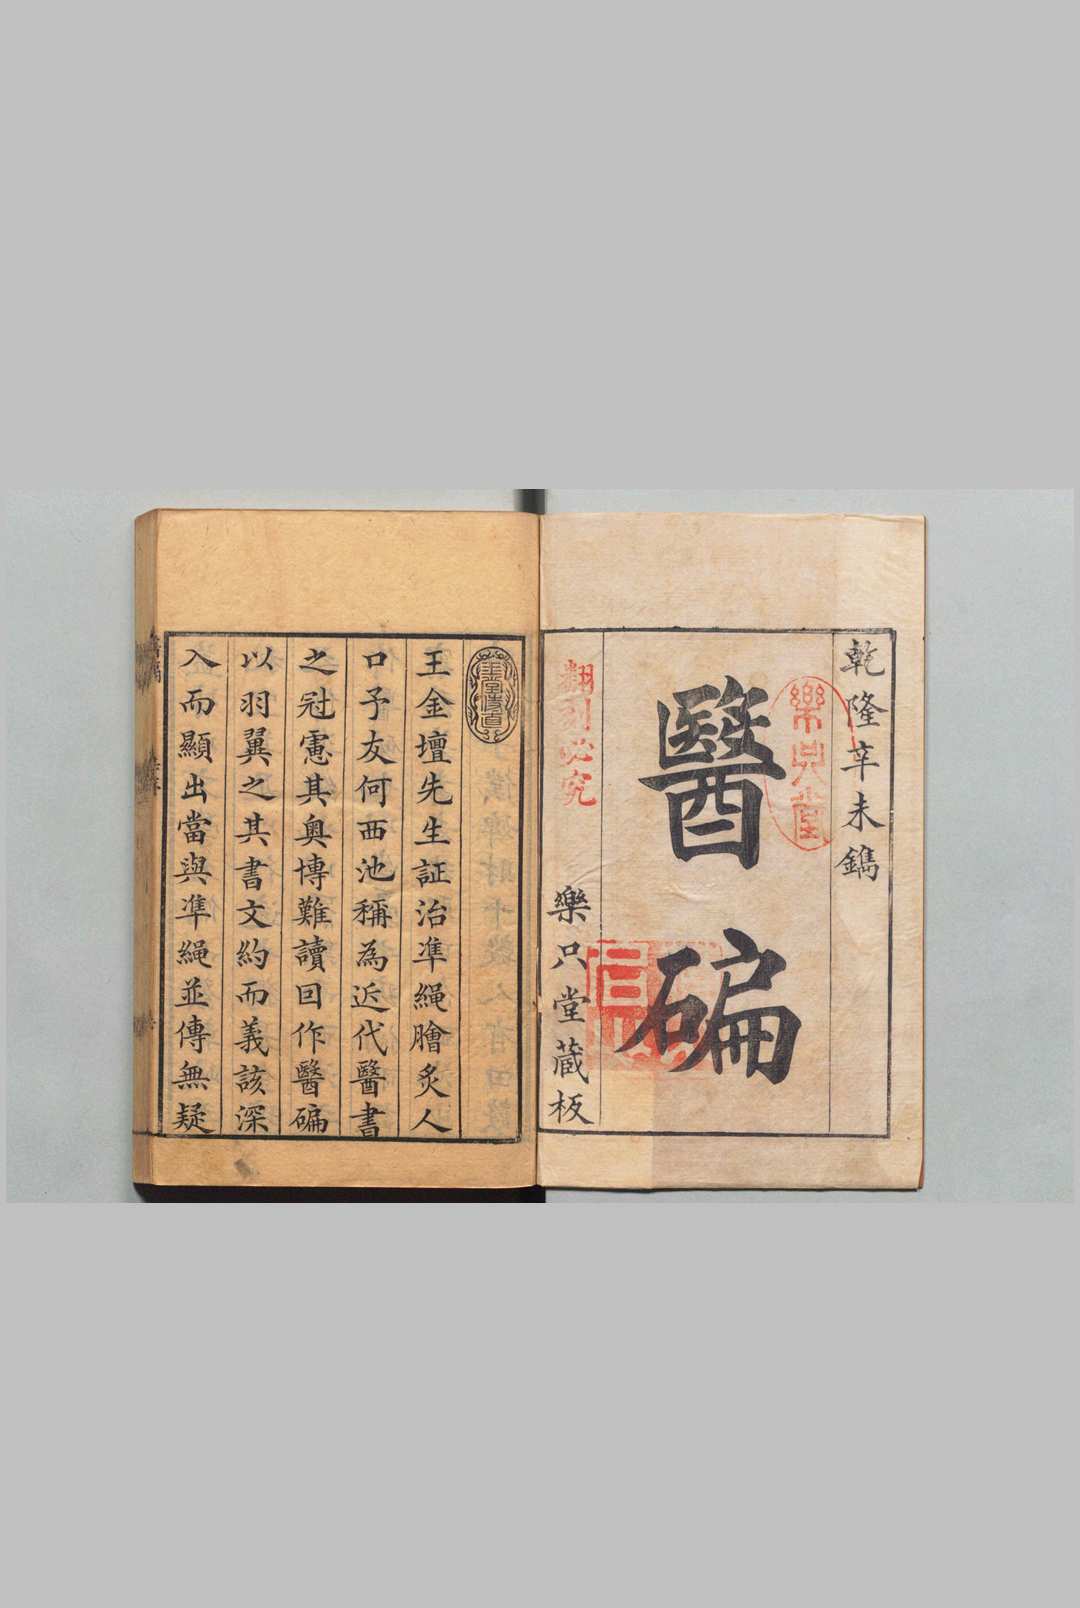 乾隆辛未鐫
樂只堂
醫碥
樂只堂蔵板
翻刻必究
王金壇先生証治凖繩膾炙人
口予友何西池稱為近代醫書
之冠慮其奥博難讀回作醫碥
以羽翼之其書文約而義該深
入而顯出當與凖繩並傳無疑